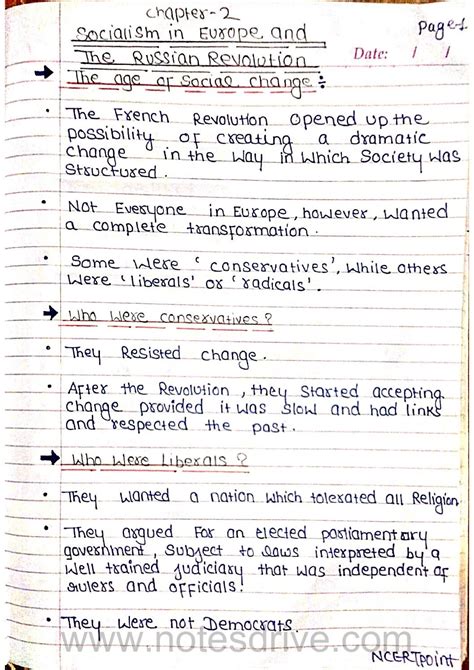 Chapter-2
Page-1
Socialism in Europe and
The Russian Revolution
Date: / /
→ The age of Social Change :-
• The French Revolution opened up the
possibility of creating a dramatic
change in the way in which Society was
Structured.
• Not Everyone in Europe, however, wanted
a complete transformation.
• Some were 'conservatives', while others
were 'liberals' or 'radicals'.
→ Who were conservatives?
• They Resisted change.
• After the Revolution, they started accepting
change provided it was slow and had links
and respected the past.
→ Who were Liberals?
• They wanted a nation which tolerated all Religion
• They argued for an elected parliamentary
government, subject to laws interpreted by a
well trained judiciary that was independent of
rulers and officials.
• They were not Democrats.
www.notesdrive.com
NCERTpoint